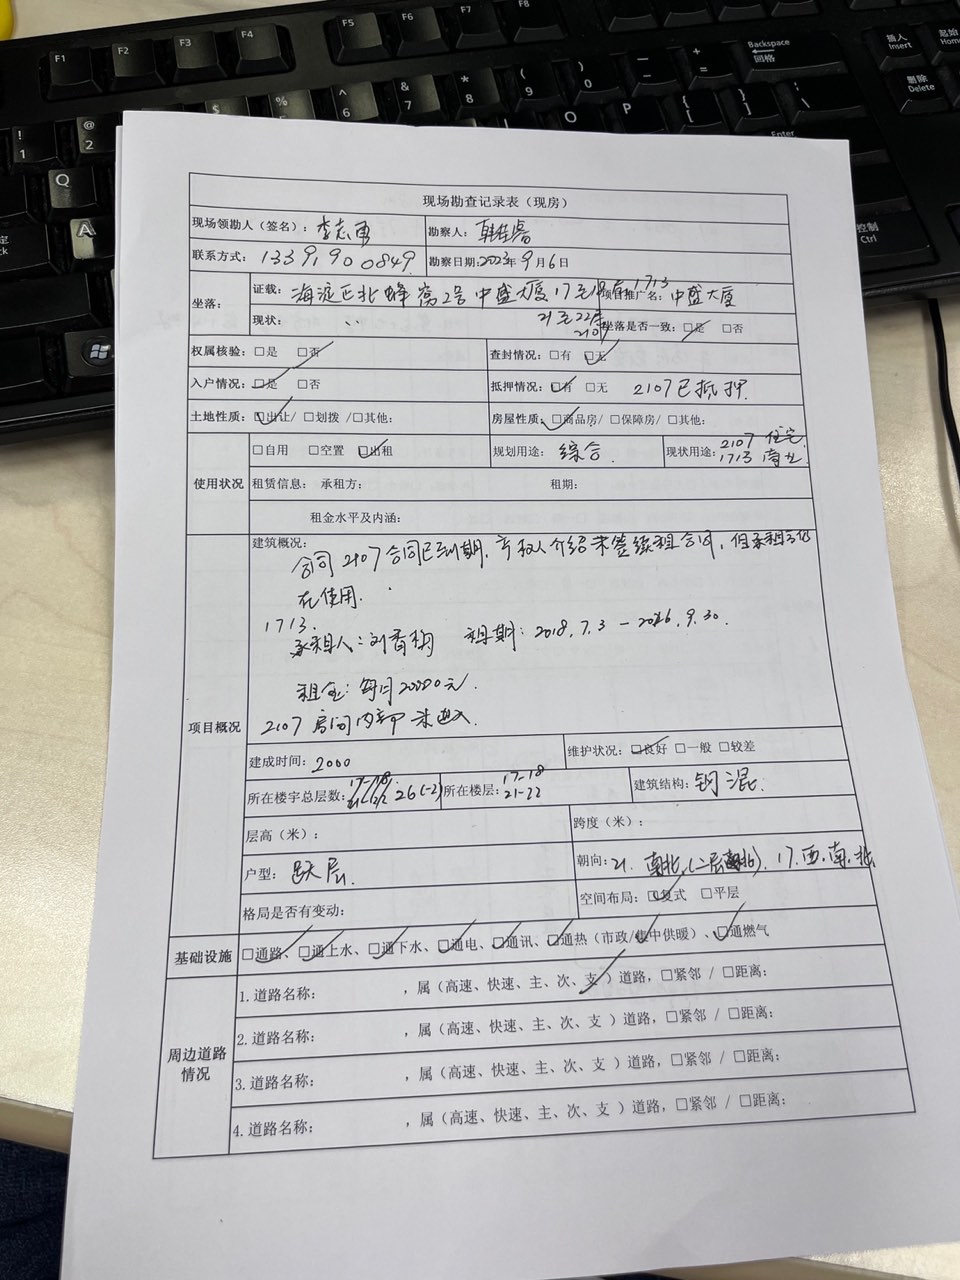 现场勘查记录表（现房）
现场领勘人（签名）：李志勇 勘察人：
联系方式：13391900849 勘察日期:2023年9月6日
坐落： 证载：海淀区北蜂窝2号中盛大厦17至18层1713 项目推广名：中盛大厦
21至22层2107
现状： 坐落是否一致：☑是 □否
权属核验：□是 ☑否 查封情况：□有 ☑无
入户情况：☑是 □否 抵押情况：☑有 □无 2107已抵押
土地性质：☑出让/ □划拨 /□其他： 房屋性质：☑商品房/ □保障房/ □其他：
使用状况 □自用 □空置 ☑出租 规划用途：综合. 现状用途：2107 住宅
1713 商业
租赁信息： 承租方： 租期：
租金水平及内涵：
项目概况 建筑概况：
合同 2107合同已到期，产权人介绍未签续租合同，但承租方仍
在使用.
1713.
承租人：刘香梅 租期：2018.7.3－2026.9.30.
租金：每月20000元.
2107房间内部未进入.
建成时间：2000 维护状况：☑良好 □一般 □较差
所在楼宇总层数：26(-2) 所在楼层：17-18
21-22 建筑结构：钢混.
层高（米）： 跨度（米）：
户型：跃层. 朝向：21. 南北.(二层南北). 17.西.南.北
格局是否有变动： 空间布局：☑复式 □平层
基础设施 ☑通路、☑通上水、☑通下水、☑通电、☑通讯、☑通热（市政/集中供暖）、☑通燃气
周边道路情况 1.道路名称： ，属（高速、快速、主、次、支 ）道路，□紧邻 / □距离：
2.道路名称： ，属（高速、快速、主、次、支 ）道路，□紧邻 / □距离：
3.道路名称： ，属（高速、快速、主、次、支 ）道路，□紧邻 / □距离：
4.道路名称： ，属（高速、快速、主、次、支 ）道路，□紧邻 / □距离：